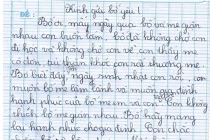 Kính gửi bố yêu!
Bố ơi mấy ngày qua bố và mẹ giận
nhau con buồn lắm, bố đã không chở con
đi học và không chở con về con thấy mẹ
cô đơn, tủi thân khóc con rất thương mẹ.
Bố biết đấy ngày sinh nhật con mà, con
muốn bố mẹ làm lành và muốn gia đình
hạnh phúc của bố mẹ em và con. Con không
thích bố mẹ giận nhau. Bố hãy mang
lại hạnh phúc cho gia đình. Con chúc